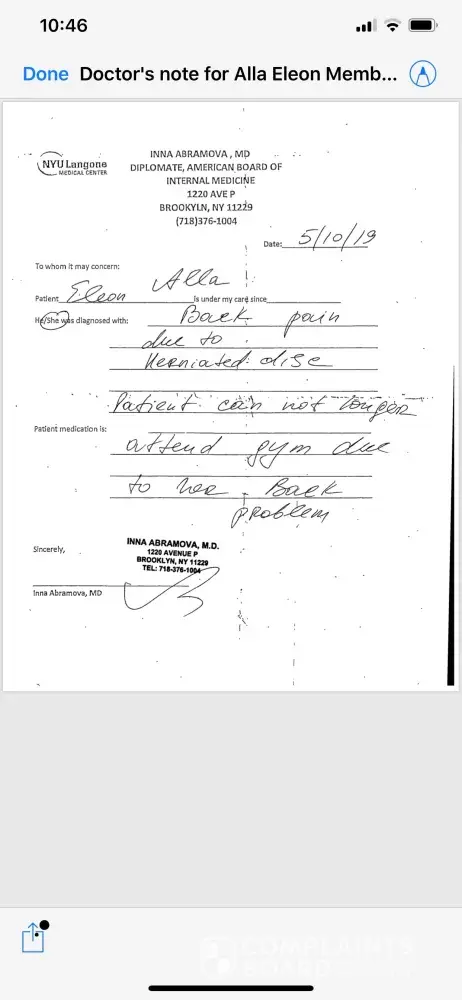 10:46
Done Doctor's note for Alla Eleon Memb...
NYU Langone
MEDICAL CENTER
INNA ABRAMOVA , MD
DIPLOMATE, AMERICAN BOARD OF
INTERNAL MEDICINE
1220 AVE P
BROOKYLN, NY 11229
(718)376-1004
Date: 5/10/19
To whom it may concern:
Patient Eleon Alla is under my care since
He/She was diagnosed with: Back pain
due to
Herniated disc
Patient can not longer
Patient medication is: attend gym due
to her Back
problem
Sincerely,
INNA ABRAMOVA, M.D.
1220 AVENUE P
BROOKLYN, NY 11229
TEL: 718-376-1004
Inna Abramova, MD
COMPLAINTS
BOARD